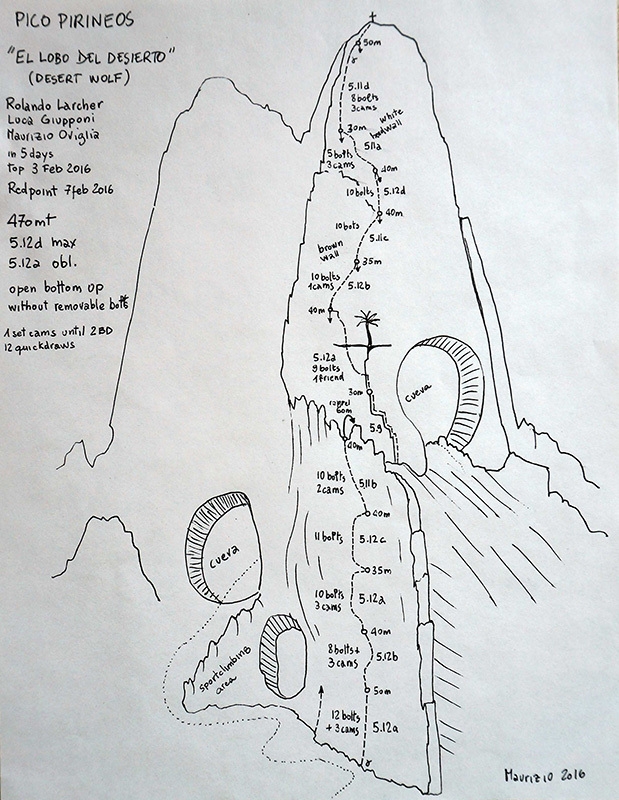 PICO PIRINEOS
"EL LOBO DEL DESIERTO"
(DESERT WOLF)
Rolando Larcher
Luca Giupponi
Maurizio Oviglia
in 5 days
top 3 Feb 2016
Redpoint 7 feb 2016
470mt
5.12d max
5.12a obl.
open bottom up
without removable bolts
1 set cams until 2BD
12 quickdraws
50m
5.11d
8 bolts
3 cams
30m
white
headwall
5.11a
5 bolts
3 cams
40m
10 bolts
5.12d
40m
10 bots
5.11c
brown
wall
35m
10 bolts
1 cams
5.12b
40m
5.12a
9 bolts
1 friend
30m
cueva
rappel
60m
5.9
40m
10 bolts
2 cams
5.11b
40m
11 bolts
5.12c
cueva
35m
10 bolts
3 cams
5.12a
40m
8 bolts +
3 cams
5.12b
sportclimbing
area
50m
12 bolts
+ 3 cams
5.12a
Maurizio 2016